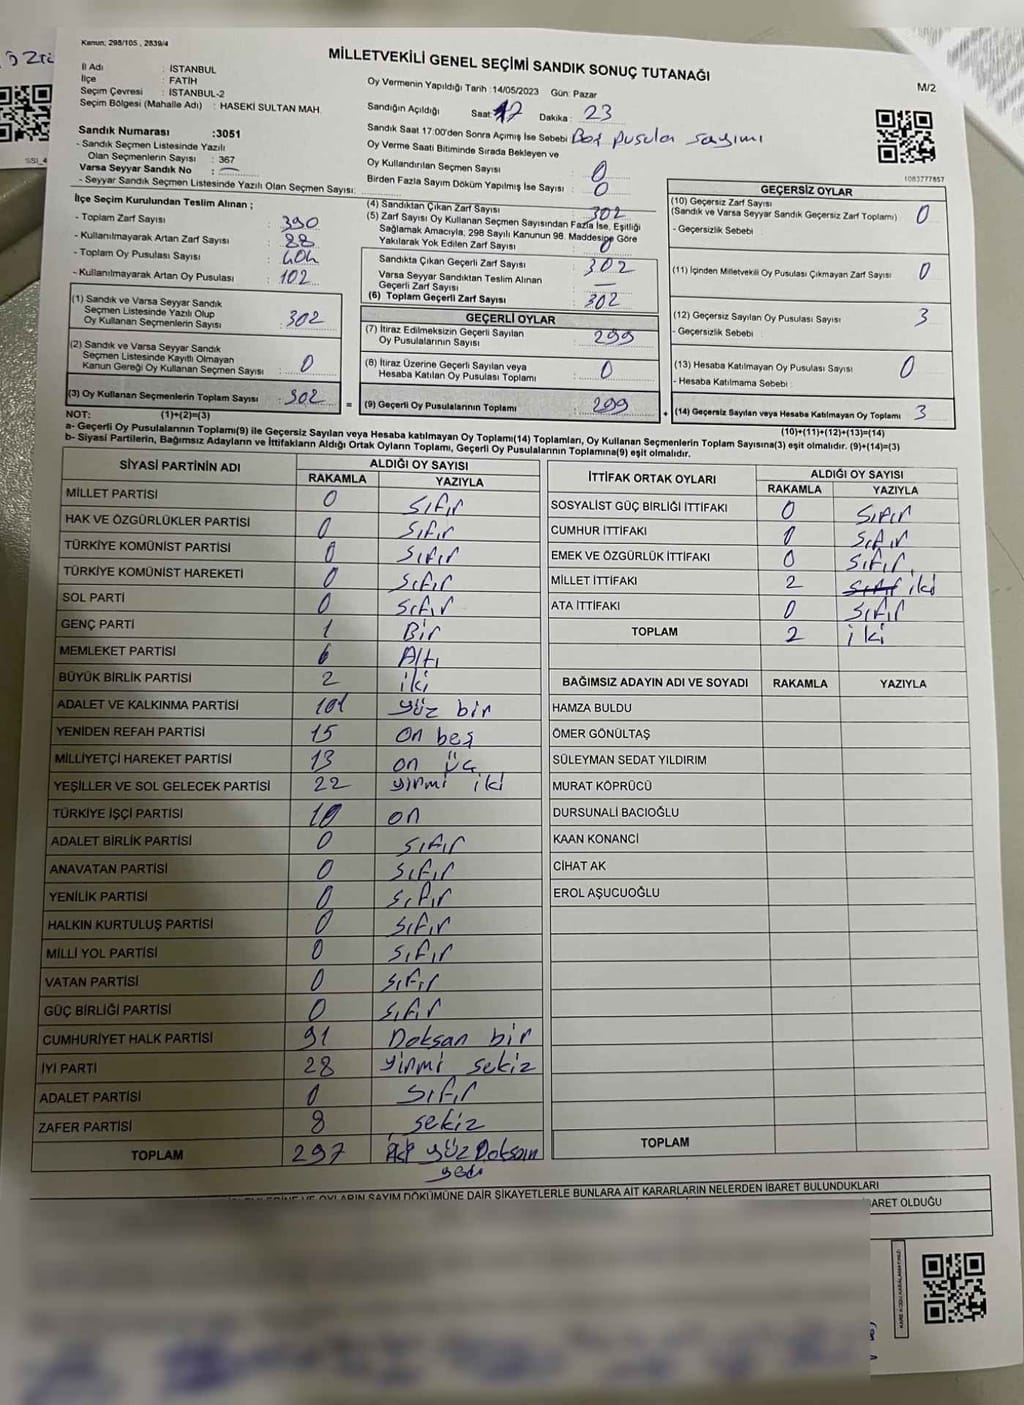 Kanun; 298/105 , 2839/4
MİLLETVEKİLİ GENEL SEÇİMİ SANDIK SONUÇ TUTANAĞI
M/2
İl Adı : İSTANBUL
İlçe : FATİH
Seçim Çevresi : İSTANBUL-2
Seçim Bölgesi (Mahalle Adı) : HASEKİ SULTAN MAH.
Oy Vermenin Yapıldığı Tarih :14/05/2023 Gün: Pazar
Sandığın Açıldığı Saat: 17 Dakika : 23
Sandık Saat 17:00'den Sonra Açımış İse Sebebi Boş pusula sayımı
Oy Verme Saati Bitiminde Sırada Bekleyen ve
Oy Kullandırılan Seçmen Sayısı : 0
Birden Fazla Sayım Döküm Yapılmış İse Sayısı : 0
1083777857
Sandık Numarası :3051
- Sandık Seçmen Listesinde Yazılı
Olan Seçmenlerin Sayısı : 367
Varsa Seyyar Sandık No : —
- Seyyar Sandık Seçmen Listesinde Yazılı Olan Seçmen Sayısı:
İlçe Seçim Kurulundan Teslim Alınan ;
- Toplam Zarf Sayısı : 390
- Kullanılmayarak Artan Zarf Sayısı : 88
- Toplam Oy Pusulası Sayısı : 404
- Kullanılmayarak Artan Oy Pusulası : 102
(1) Sandık ve Varsa Seyyar Sandık
Seçmen Listesinde Yazılı Olup
Oy Kullanan Seçmenlerin Sayısı : 302
(2) Sandık ve Varsa Seyyar Sandık
Seçmen Listesinde Kayıtlı Olmayan
Kanun Gereği Oy Kullanan Seçmen Sayısı : 0
(3) Oy Kullanan Seçmenlerin Toplam Sayısı : 302
(4) Sandıktan Çıkan Zarf Sayısı : 302
(5) Zarf Sayısı Oy Kullanan Seçmen Sayısından Fazla İse, Eşitliği
Sağlamak Amacıyla, 298 Sayılı Kanunun 98. Maddesine Göre
Yakılarak Yok Edilen Zarf Sayısı : 0
Sandıkta Çıkan Geçerli Zarf Sayısı : 302
Varsa Seyyar Sandıktan Teslim Alınan
Geçerli Zarf Sayısı : —
(6) Toplam Geçerli Zarf Sayısı : 302
GEÇERLİ OYLAR
(7) İtiraz Edilmeksizin Geçerli Sayılan
Oy Pusulalarının Sayısı : 299
(8) İtiraz Üzerine Geçerli Sayılan veya
Hesaba Katılan Oy Pusulası Toplamı : 0
= (9) Geçerli Oy Pusulalarının Toplamı : 299 +
GEÇERSİZ OYLAR
(10) Geçersiz Zarf Sayısı
(Sandık ve Varsa Seyyar Sandık Geçersiz Zarf Toplamı) : 0
- Geçersizlik Sebebi :
(11) İçinden Milletvekili Oy Pusulası Çıkmayan Zarf Sayısı : 0
(12) Geçersiz Sayılan Oy Pusulası Sayısı : 3
- Geçersizlik Sebebi :
(13) Hesaba Katılmayan Oy Pusulası Sayısı : 0
- Hesaba Katılmama Sebebi :
(14) Geçersiz Sayılan veya Hesaba Katılmayan Oy Toplamı : 3
NOT: (1)+(2)=(3)
(10)+(11)+(12)+(13)=(14)
a- Geçerli Oy Pusulalarının Toplamı(9) ile Geçersiz Sayılan veya Hesaba katılmayan Oy Toplamı(14) Toplamları, Oy Kullanan Seçmenlerin Toplam Sayısına(3) eşit olmalıdır. (9)+(14)=(3)
b- Siyasi Partilerin, Bağımsız Adayların ve İttifakların Aldığı Ortak Oyların Toplamı, Geçerli Oy Pusulalarının Toplamına(9) eşit olmalıdır.
SİYASİ PARTİNİN ADI ALDIĞI OY SAYISI
RAKAMLA YAZIYLA
MİLLET PARTİSİ 0 Sıfır
HAK VE ÖZGÜRLÜKLER PARTİSİ 0 Sıfır
TÜRKİYE KOMÜNİST PARTİSİ 0 Sıfır
TÜRKİYE KOMÜNİST HAREKETİ 0 Sıfır
SOL PARTİ 0 Sıfır
GENÇ PARTİ 1 Bir
MEMLEKET PARTİSİ 6 Altı
BÜYÜK BİRLİK PARTİSİ 2 iki
ADALET VE KALKINMA PARTİSİ 101 yüz bir
YENİDEN REFAH PARTİSİ 15 on beş
MİLLİYETÇİ HAREKET PARTİSİ 13 on üç
YEŞİLLER VE SOL GELECEK PARTİSİ 22 yirmi iki
TÜRKİYE İŞÇİ PARTİSİ 10 on
ADALET BİRLİK PARTİSİ 0 Sıfır
ANAVATAN PARTİSİ 0 Sıfır
YENİLİK PARTİSİ 0 Sıfır
HALKIN KURTULUŞ PARTİSİ 0 Sıfır
MİLLİ YOL PARTİSİ 0 Sıfır
VATAN PARTİSİ 0 Sıfır
GÜÇ BİRLİĞİ PARTİSİ 0 Sıfır
CUMHURİYET HALK PARTİSİ 91 Doksan bir
İYİ PARTİ 28 yirmi sekiz
ADALET PARTİSİ 0 Sıfır
ZAFER PARTİSİ 8 sekiz
TOPLAM 297 iki yüz Doksan
yedi
İTTİFAK ORTAK OYLARI ALDIĞI OY SAYISI
RAKAMLA YAZIYLA
SOSYALİST GÜÇ BİRLİĞİ İTTİFAKI 0 Sıfır
CUMHUR İTTİFAKI 0 Sıfır
EMEK VE ÖZGÜRLÜK İTTİFAKI 0 Sıfır
MİLLET İTTİFAKI 2 iki
ATA İTTİFAKI 0 Sıfır
TOPLAM 2 iki
BAĞIMSIZ ADAYIN ADI VE SOYADI RAKAMLA YAZIYLA
HAMZA BULDU
ÖMER GÖNÜLTAŞ
SÜLEYMAN SEDAT YILDIRIM
MURAT KÖPRÜCÜ
DURSUNALİ BACIOĞLU
KAAN KONANCİ
CİHAT AK
EROL AŞUCUOĞLU
TOPLAM
VE OYLARIN SAYIM DÖKÜMÜNE DAİR ŞİKAYETLERLE BUNLARA AİT KARARLARIN NELERDEN İBARET BULUNDUKLARI
BARET OLDUĞU